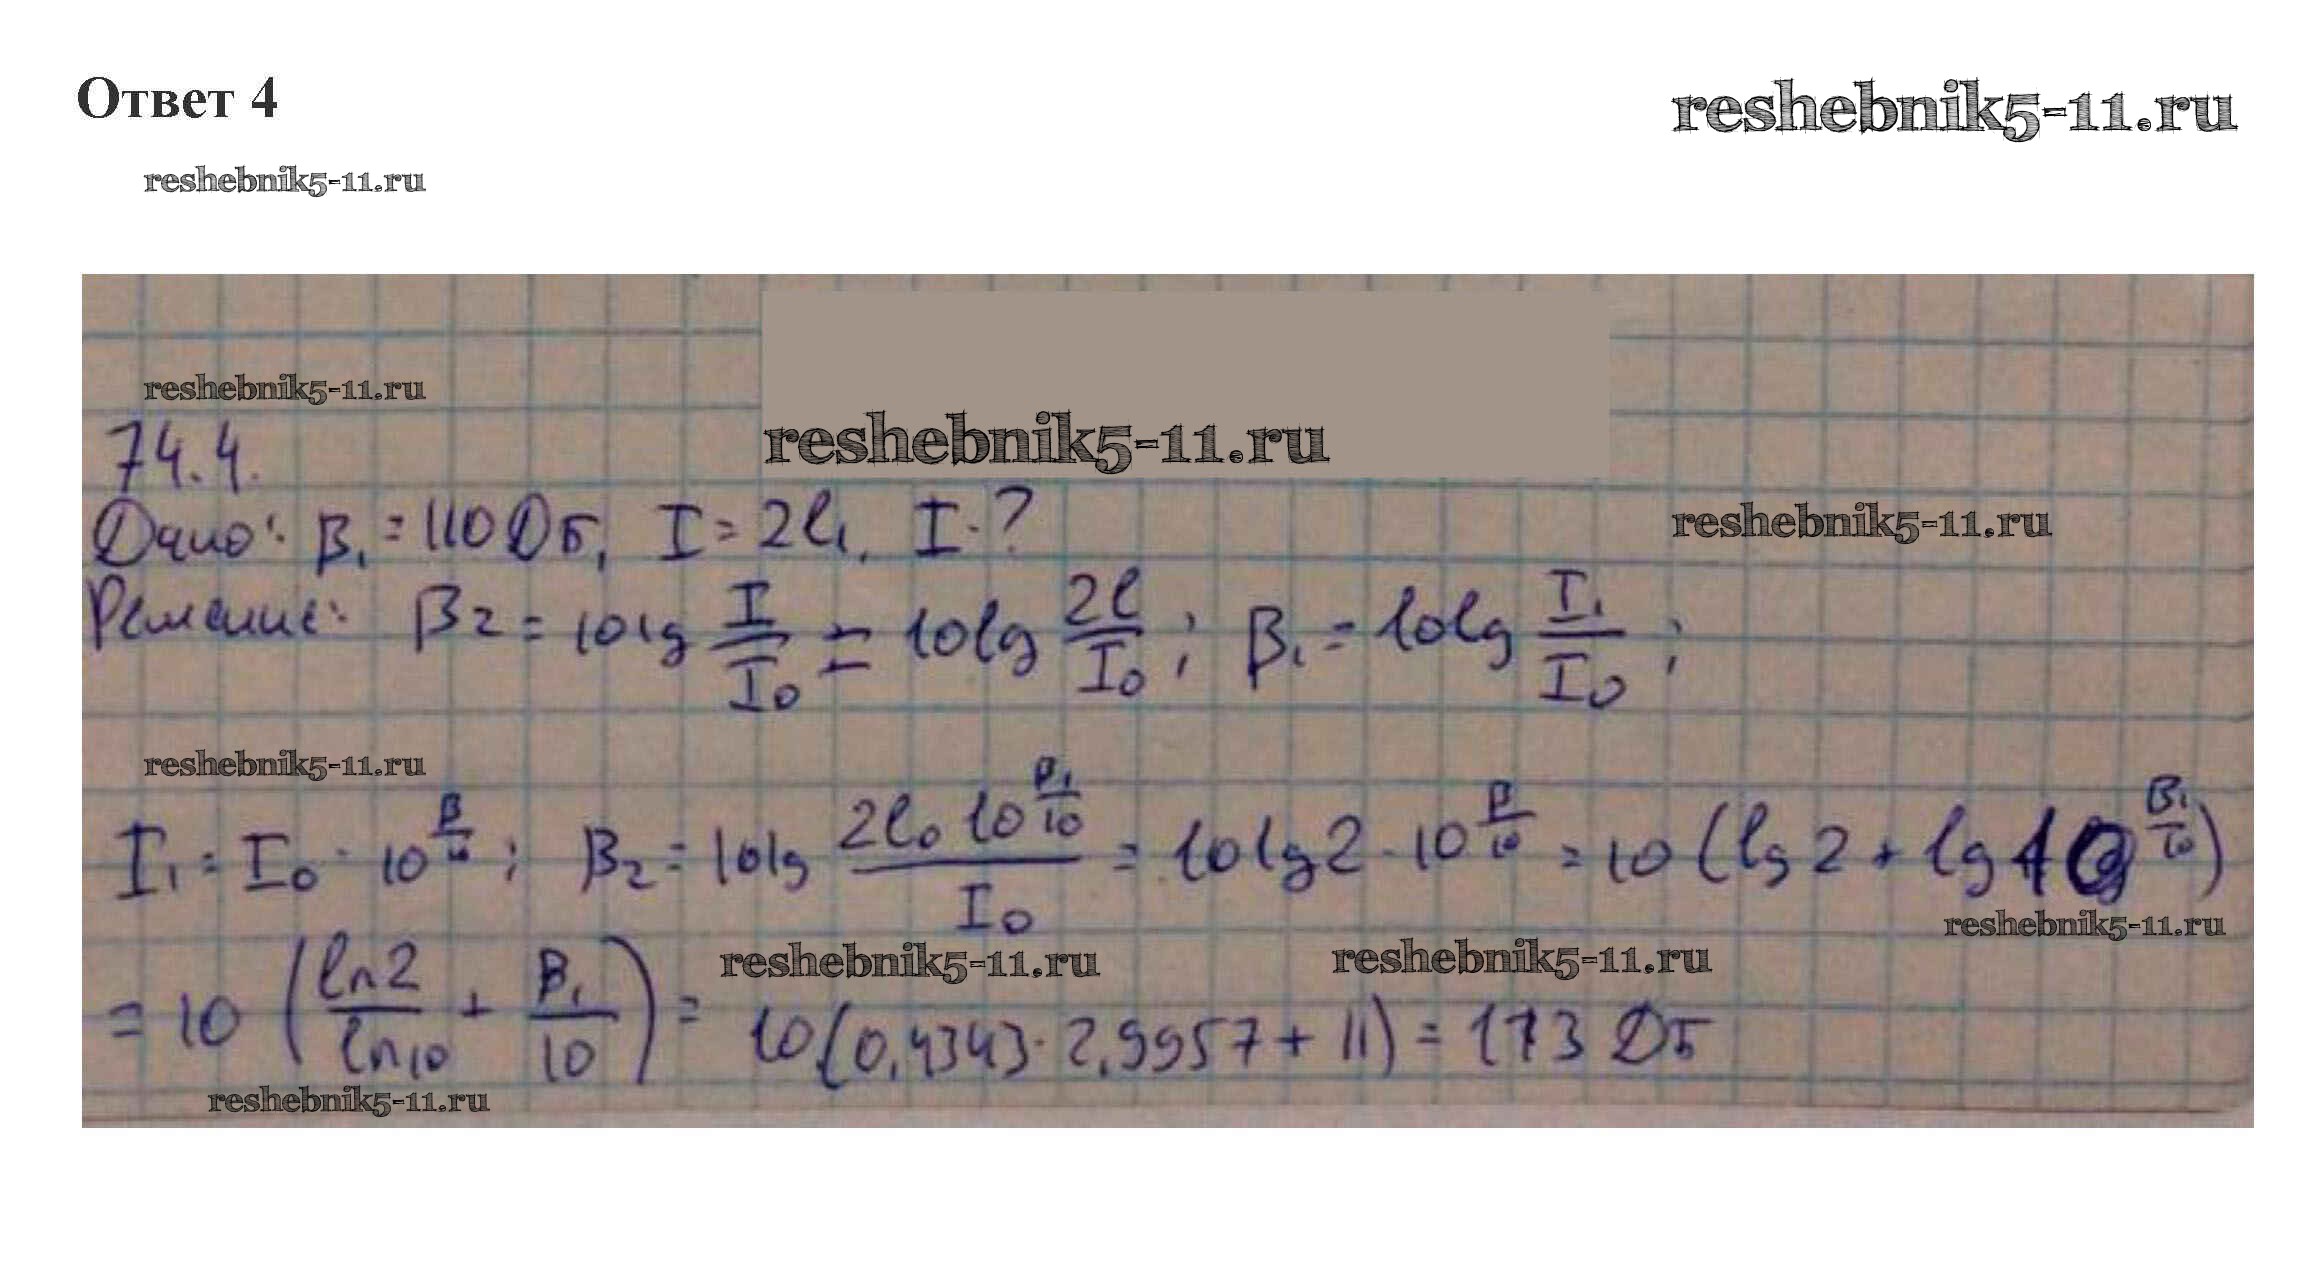 Ответ 4
reshebnik5-11.ru
reshebnik5-11.ru
reshebnik5-11.ru
reshebnik5-11.ru
74.4.
Дано: β₁ = 110 Дб, I = 2l₁, I - ?
reshebnik5-11.ru
Решение: β2 = 10lg I/I₀ = 10lg 2l/I₀ ; β₁ = 10lg I₁/I₀ ;
reshebnik5-11.ru
I₁ = I₀ · 10^(β/10) ; β₂ = 10lg (2l₀ 10^(β₁/10))/I₀ = 10lg2 · 10^(β/10) = 10 (lg2 + lg10^(β₁/10))
reshebnik5-11.ru
reshebnik5-11.ru
reshebnik5-11.ru
= 10 (ln2/ln10 + β₁/10) = 10(0,4343 · 2,9957 + 11) = 173 Дб
reshebnik5-11.ru